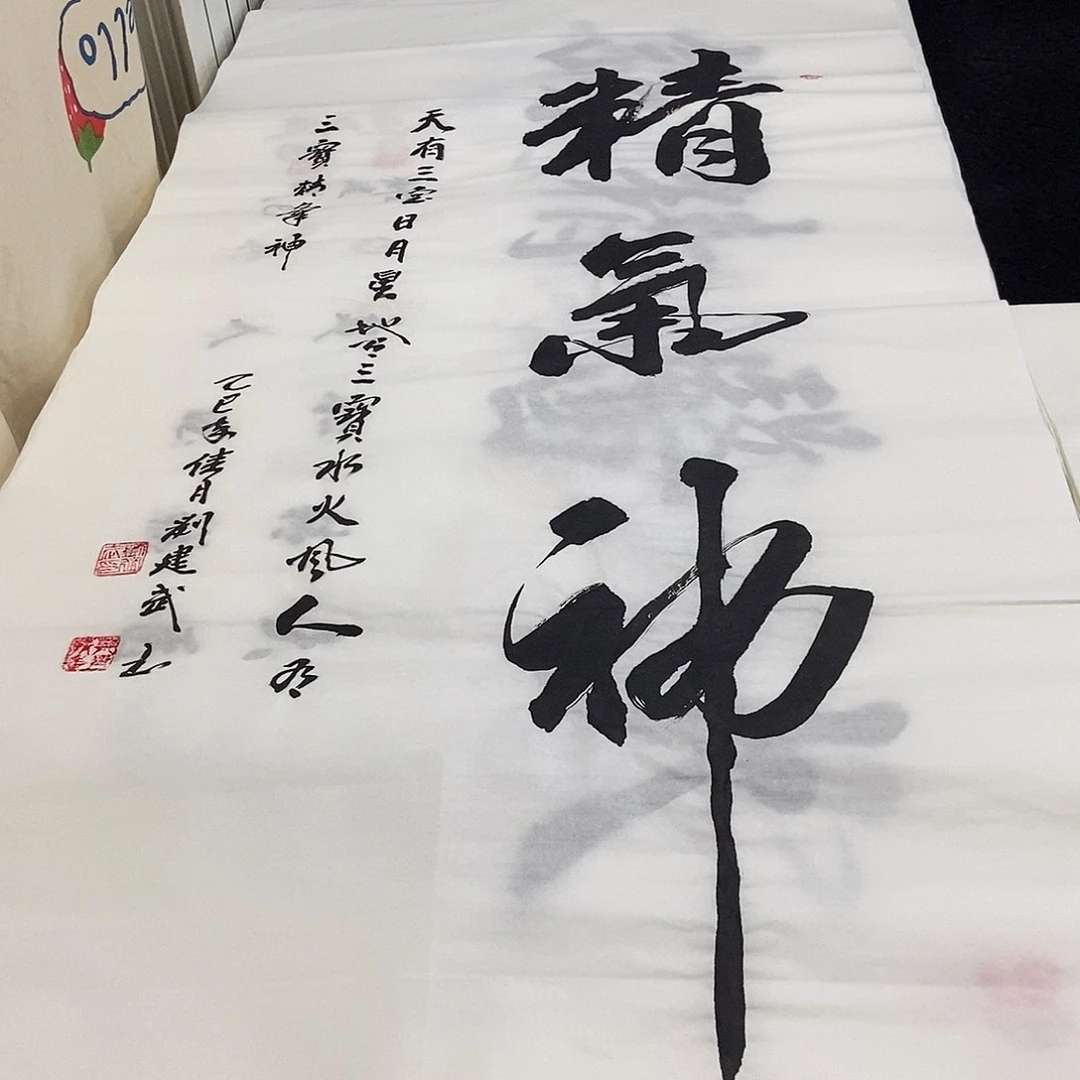 精氣神
天有三宝日月星地有三寶水火風人有
三寶精氣神
乙巳年佳月劉建武书